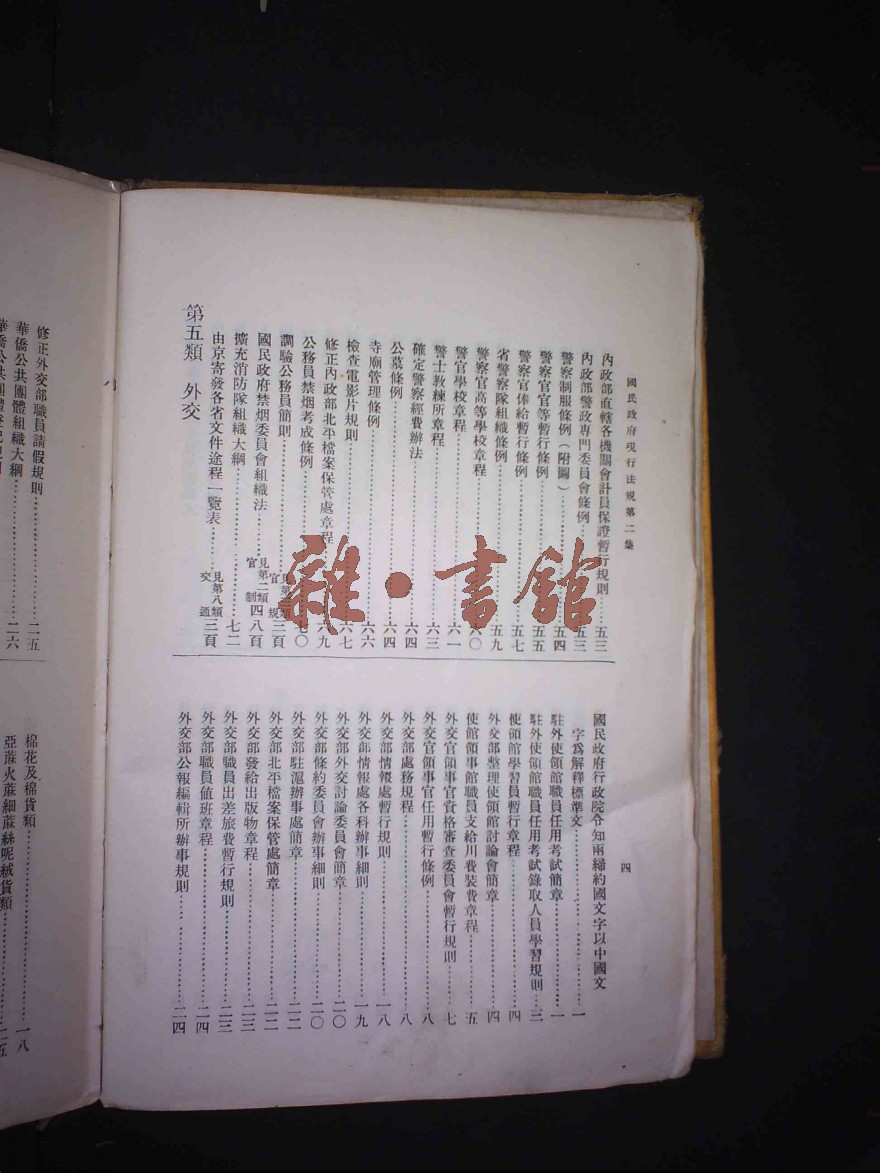 國民政府現行法規第二集
內政部直轄各機關會計員保證暫行規則……五三
內政部警政專門委員會條例……五三
警察制服條例(附圖)……五四
警察官官等暫行條例……五五
警察官俸給暫行條例……五七
省警察隊組織條例……五九
警察官高等學校章程……六〇
警官學校章程……六一
警士教練所章程……六三
確定警察經費辦法……六四
公墓條例……六四
寺廟管理條例……六六
檢查電影片規則……六七
修正內政部北平檔案保管處章程……六九
公務員禁烟考成條例……七〇
調驗公務員簡則……見第二類官規三頁
國民政府禁烟委員會組織法……見第二類官制四八頁
擴充消防隊組織大綱……七二
由京寄發各省文件途程一覽表……見第八類交通三頁
第五類 外交
四
國民政府行政院令知兩締約國文字以中國文
字爲解釋標準文……一
駐外使領館職員任用考試簡章……一
駐外使領館職員任用考試錄取人員學習規則……三
使領館學習員暫行章程……四
外交部整理使領館討論會簡章……四
使館領事館職員支給川費裝費章程……五
外交官領事官資格審查委員會暫行規則……七
外交官領事官任用暫行條例……八
外交部處務規程……八
外交部情報處暫行規則……一八
外交部情報處各科辦事細則……一九
外交部外交討論委員會簡章……二〇
外交部條約委員會辦事細則……二〇
外交部駐滬辦事處簡章……二二
外交部北平檔案保管處簡章……二二
外交部發給出版物章程……二三
外交部職員出差旅費暫行規則……二三
外交部職員值班章程……二四
外交部公報編輯所辦事規則……二四
修正外交部職員請假規則……二五
華僑公共團體組織大綱……二六
棉花及棉貨類……一八
亞蔴火蔴細蔴絲呢絨貨類……二五
雜·書館